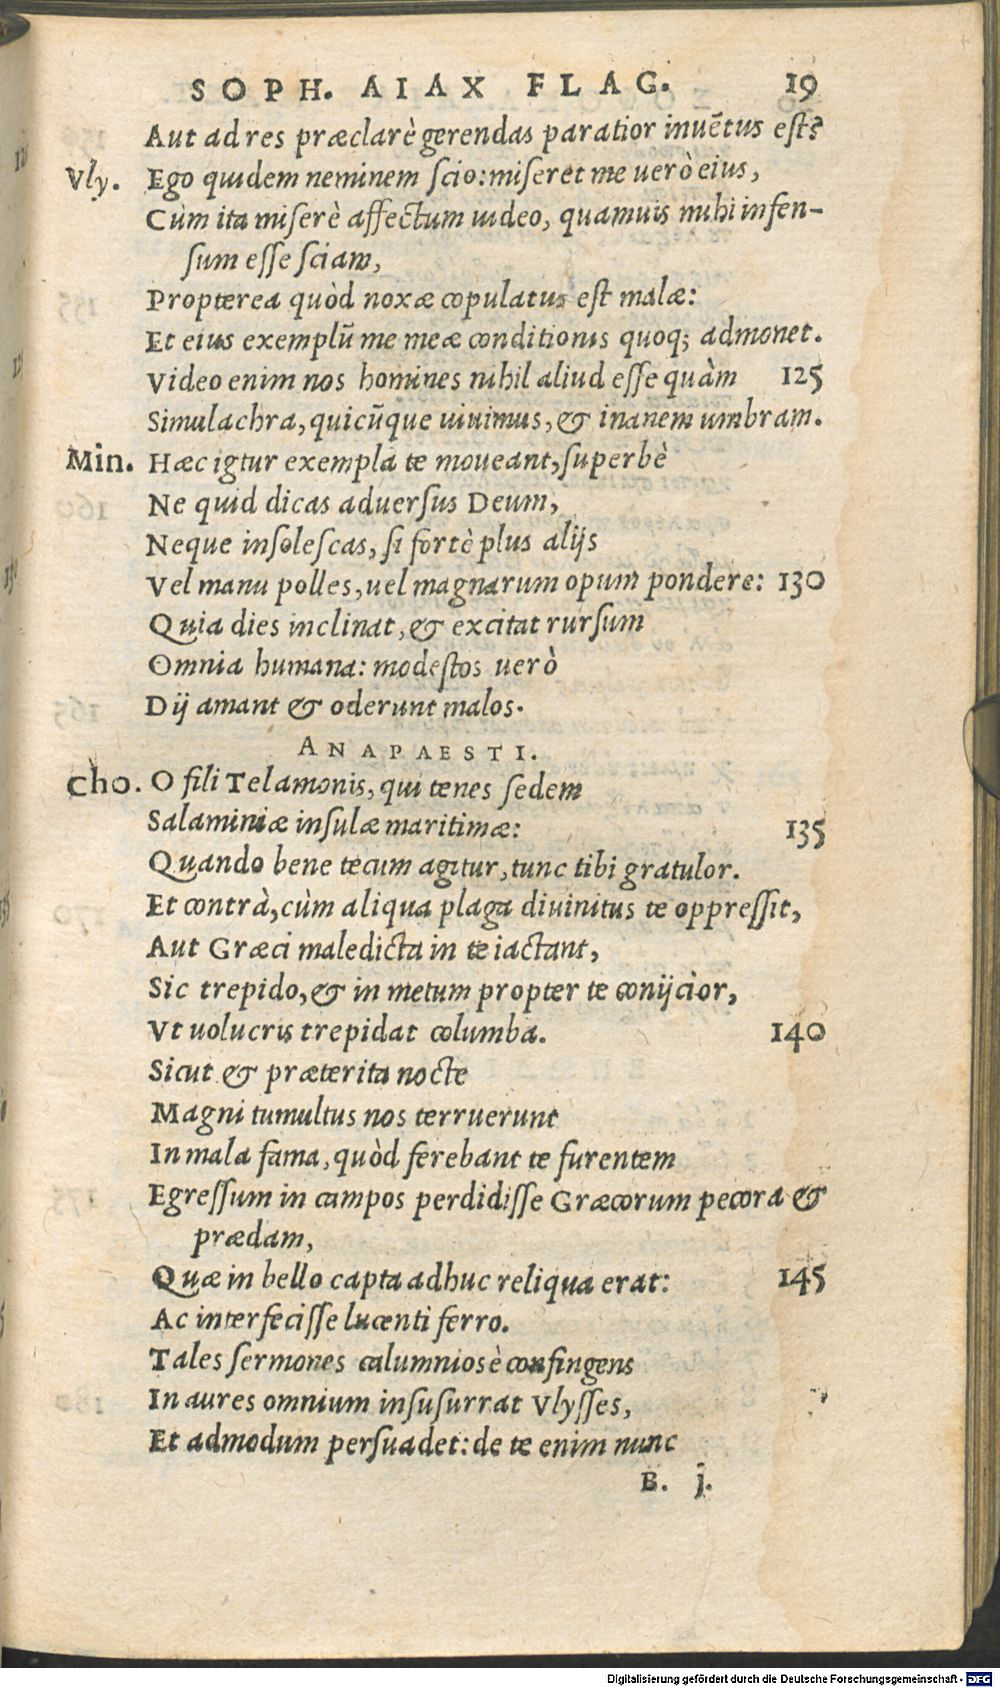 SOPH. AIAX FLAG. 19
Aut ad res præclarè gerendas paratior inuẽtus est?
Vly. Ego quidem neminem scio: miseret me uerò eius,
Cùm ita miserè affectum uideo, quamuis mihi infen-
sum esse sciam,
Propterea quòd noxæ copulatus est malæ:
Et eius exemplũ me meæ conditionis quoq; admonet.
Video enim nos homines nihil aliud esse quàm 125
Simulachra, quicũque uiuimus, & inanem umbram.
Min. Hæc igtur exempla te moueant, superbè
Ne quid dicas aduersus Deum,
Neque insolescas, si fortè plus alijs
Vel manu polles, uel magnarum opum pondere: 130
Quia dies inclinat, & excitat rursum
Omnia humana: modestos uerò
Dij amant & oderunt malos.
ANAPAESTI.
Cho. O fili Telamonis, qui tenes sedem
Salaminiæ insulæ maritimæ: 135
Quando bene tecum agitur, tunc tibi gratulor.
Et contrà, cùm aliqua plaga diuinitus te oppressit,
Aut Græci maledicta in te iactant,
Sic trepido, & in metum propter te conijcior,
Vt uolucris trepidat columba. 140
Sicut & præterita nocte
Magni tumultus nos terruerunt
In mala fama, quòd ferebant te furentem
Egressum in campos perdidisse Græcorum pecora &
prædam,
Quæ in bello capta adhuc reliqua erat: 145
Ac interfecisse lucenti ferro.
Tales sermones calumniosè confingens
In aures omnium insusurrat Vlysses,
Et admodum persuadet: de te enim nunc
B. j.
Digitalisierung gefördert durch die Deutsche Forschungsgemeinschaft - DFG